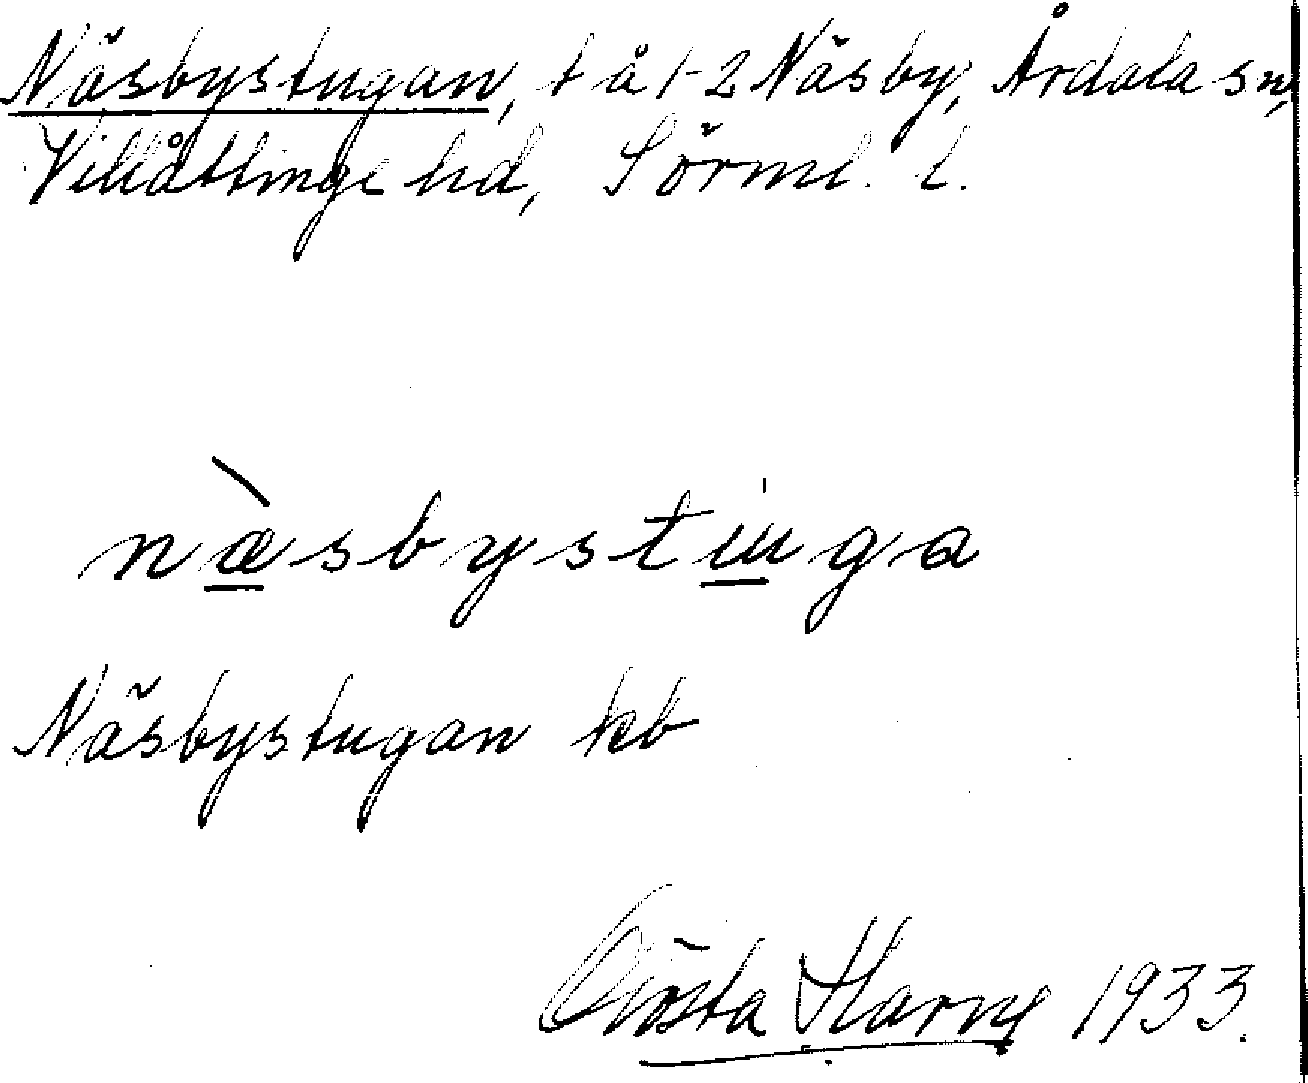 Näsbystugan, t å 1-2 Näsby, Årdala sn,
Villåttinge hd, Sörml. l.
næ̀sbystuga
Näsbystugan kb
Gösta Harne 1933.